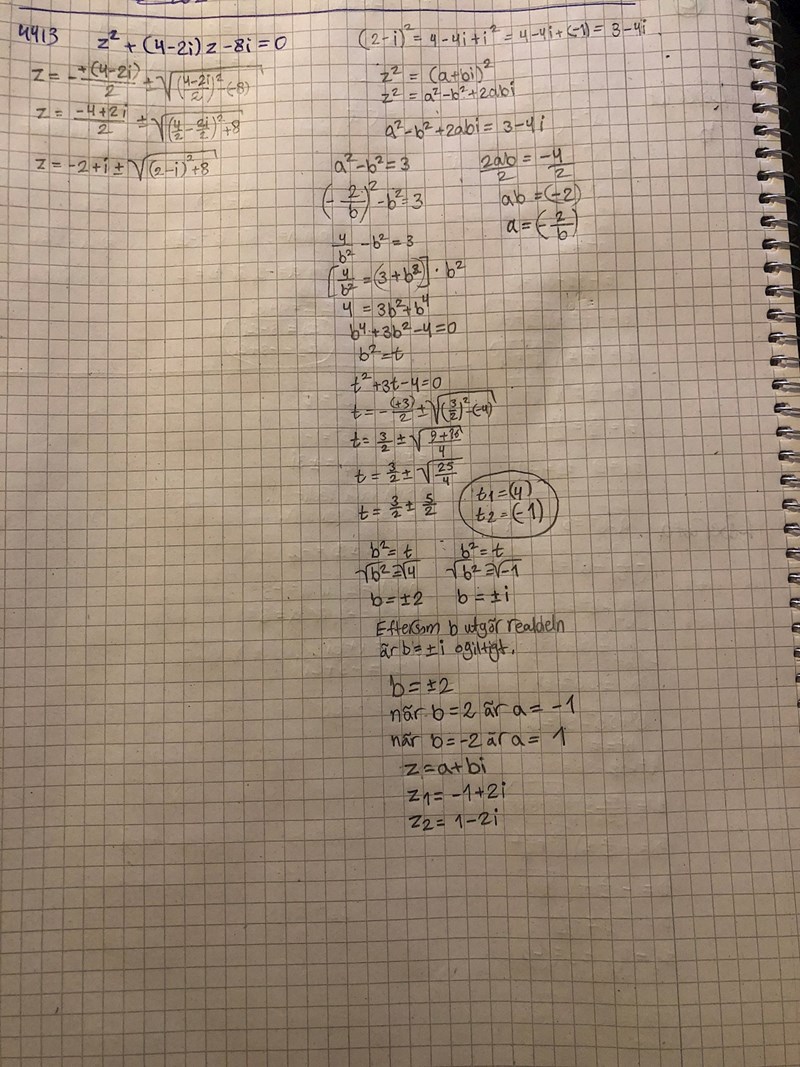 4413 z² + (4-2i)z - 8i = 0
z = -+(4-2i)/2 ± √((4-2i)/2)² -(-8)
z = -4+2i/2 ± √(4/2 - 2i/2)² +8
z = -2+i ± √(2-i)²+8
(2-i)² = 4-4i+i² = 4-4i+(-1) = 3-4i
z² = (a+bi)²
z² = a²-b²+2abi
a²-b²+2abi = 3-4i
a²-b² = 3
2ab/2 = -4/2
(-2/b)² - b² = 3
ab = (-2)
a = (-2/b)
4/b² - b² = 3
[4/b² = (3+b²)] · b²
4 = 3b²+b⁴
b⁴+3b²-4=0
b²=t
t²+3t-4=0
t = -(+3)/2 ± √(3/2)² -(-4)
t = 3/2 ± √9+16/4
t = 3/2 ± √25/4
t = 3/2 ± 5/2
t₁ = (4)
t₂ = (-1)
b² = t b² = t
√b² = √4 √b² = √-1
b = ±2 b = ±i
Eftersom b utgör realdeln
är b = ±i ogiltigt.
b = ±2
när b = 2 är a = -1
när b = -2 är a = 1
z = a+bi
z₁ = -1+2i
z₂ = 1-2i